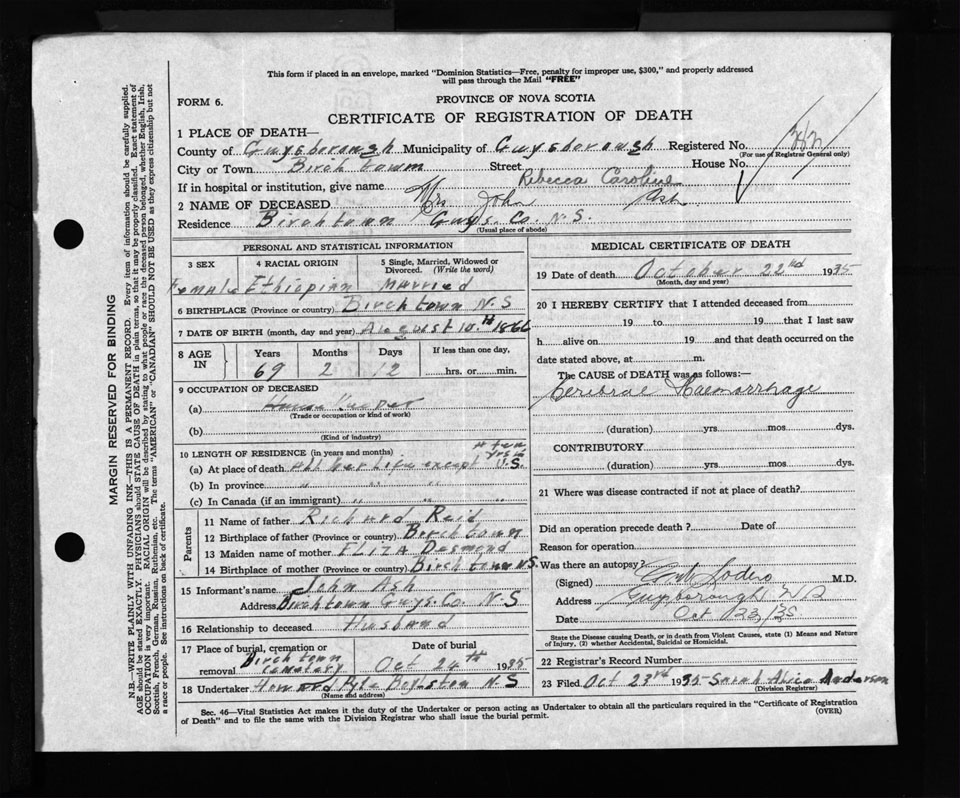 This form if placed in an envelope, marked "Dominion Statistics—Free, penalty for improper use, $300," and properly addressed
will pass through the Mail "FREE"
FORM 6.
PROVINCE OF NOVA SCOTIA
CERTIFICATE OF REGISTRATION OF DEATH
1 PLACE OF DEATH—
County of Guysborough Municipality of Guysborough Registered No.
(For use of Registrar General only)
City or Town Birchtown Street House No.
If in hospital or institution, give name Rebecca Caroline
2 NAME OF DECEASED Mrs John Ash
Residence Birchtown Guys. Co. N.S.
(Usual place of abode)
PERSONAL AND STATISTICAL INFORMATION
3 SEX 4 RACIAL ORIGIN 5 Single, Married, Widowed or Divorced. (Write the word)
Female Ethiopian Married
6 BIRTHPLACE (Province or country) Birchtown N.S
7 DATE OF BIRTH (month, day and year) August 10th 1866
8 AGE IN Years Months Days If less than one day,
69 2 12 hrs. or min.
9 OCCUPATION OF DECEASED
(a) House Keeper
(Trade or occupation or kind of work)
(b)
(Kind of industry)
10 LENGTH OF RESIDENCE (in years and months) ten yrs in
(a) At place of death All her life except U.S.
(b) In province " " "
(c) In Canada (if an immigrant) " " "
Parents
11 Name of father Richard Reid
12 Birthplace of father (Province or country) Birchtown
13 Maiden name of mother Eliza Desmond
14 Birthplace of mother (Province or country) Birchtown N.S.
15 Informant's name John Ash
Address Birchtown Guys. Co. N.S
16 Relationship to deceased Husband
17 Place of burial, cremation or removal Date of burial
Birchtown Cemetery Oct 24th 1935
18 Undertaker Howard Pyle Boylston N.S
(Name and address)
MEDICAL CERTIFICATE OF DEATH
19 Date of death October 22nd 1935
(Month, day and year)
20 I HEREBY CERTIFY that I attended deceased from
19 to 19 that I last saw
h alive on 19 and that death occurred on the
date stated above, at m.
The CAUSE of DEATH was as follows:—
Cerebral Haemorrhage
(duration) yrs mos dys.
CONTRIBUTORY
(duration) yrs. mos. dys.
21 Where was disease contracted if not at place of death?
Did an operation precede death ? Date of
Reason for operation
Was there an autopsy?
(Signed) M.D.
Address Guysborough NS
Date Oct 23/35
State the Disease causing Death, or in death from Violent Causes, state (1) Means and Nature
of Injury, (2) whether Accidental, Suicidal or Homicidal.
22 Registrar's Record Number
23 Filed Oct 23rd 1935 Sarah Alice Anderson
(Division Registrar)
Sec. 46—Vital Statistics Act makes it the duty of the Undertaker or person acting as Undertaker to obtain all the particulars required in the "Certificate of Registration
of Death" and to file the same with the Division Registrar who shall issue the burial permit.
(OVER)
MARGIN RESERVED FOR BINDING
N.B.—WRITE PLAINLY WITH UNFADING INK—THIS IS A PERMANENT RECORD. Every item of information should be carefully supplied.
AGE should be stated EXACTLY. PHYSICIANS should STATE CAUSE OF DEATH in plain terms, so that it may be properly classified. Exact statement of
OCCUPATION is very important. RACIAL ORIGIN will be described by stating to what people or race the deceased person belonged, whether English, Irish,
Scottish, French, German, Russian, Ruthenian, etc. The terms "AMERICAN" or "CANADIAN" SHOULD NOT BE USED as they express citizenship but not
a race or people. See instructions on back of certificate.